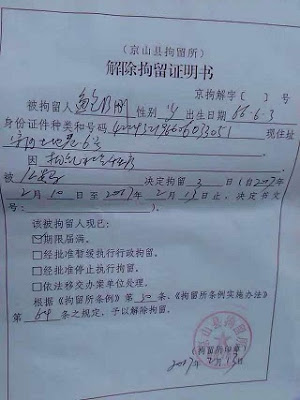 （京山县拘留所）
解除拘留证明书
京拘解字〔 〕号
被拘留人 性别 女 出生日期 66.6.3
身份证件种类和号码 现住址
6号
因
被 决定拘留 3 日（自2017年
2月10日至2017年2月13日止，决定书文
号： ）。
该被拘留人现已：
☑期限届满。
□经批准暂缓执行行政拘留。
□经批准停止执行拘留。
□依法移交办案单位处理。
根据《拘留所条例》第30条、《拘留所条例实施办法》
第64条之规定，予以解除拘留。
（拘留所印章）
2017年2月13日